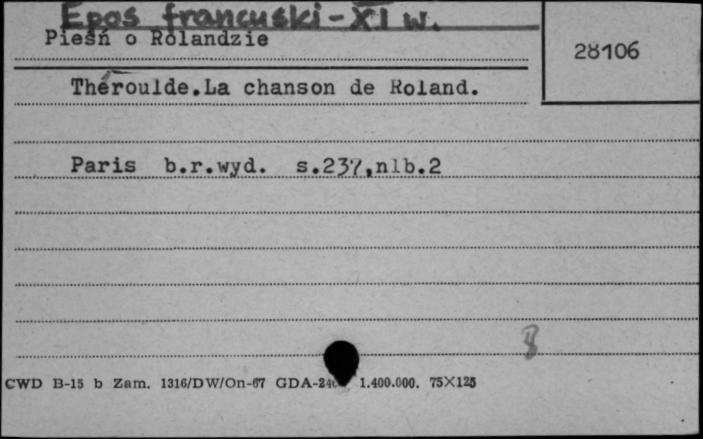 Epos francuski - XI w.
Pieśń o Rolandzie
28106
Théroulde.La chanson de Roland.
Paris b.r.wyd. s.237,nlb.2
CWD B-15 b Zam. 1316/DW/On-67 GDA-24 1.400.000. 75×125